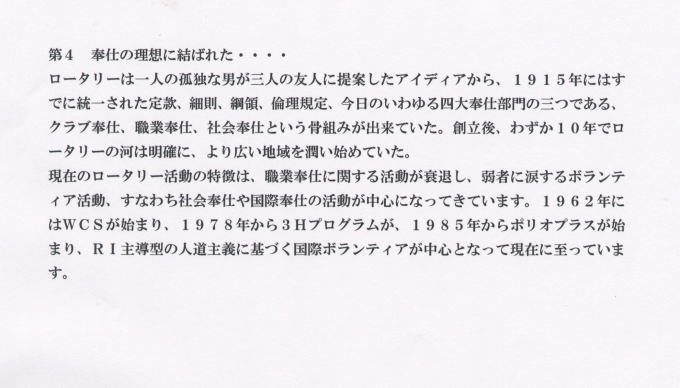 第４　奉仕の理想に結ばれた・・・・
ロータリーは一人の孤独な男が三人の友人に提案したアイディアから、１９１５年にはす
でに統一された定款、細則、綱領、倫理規定、今日のいわゆる四大奉仕部門の三つである、
クラブ奉仕、職業奉仕、社会奉仕という骨組みが出来ていた。創立後、わずか１０年でロ
ータリーの河は明確に、より広い地域を潤い始めていた。
現在のロータリー活動の特徴は、職業奉仕に関する活動が衰退し、弱者に涙するボランテ
ィア活動、すなわち社会奉仕や国際奉仕の活動が中心になってきています。１９６２年に
はＷＣＳが始まり、１９７８年から３Ｈプログラムが、１９８５年からポリオプラスが始
まり、ＲＩ主導型の人道主義に基づく国際ボランティアが中心となって現在に至っていま
す。